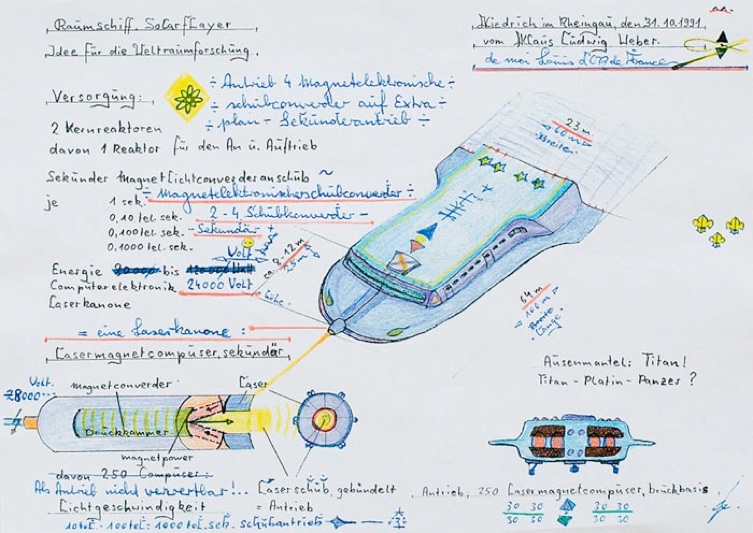 Raumschiff. SolarfLayer
Idee für die Weltraumforschung.
Niedrich im Rheingau, den 31.10.1991
vom Klaus Ludwig Weber.
de moi Louis d' de France
Versorgung:
÷ Antrieb 4 Magnetelektronische ÷
÷ schübconverder auf Extra ÷
÷ plan - Sekünderantrieb ÷
2 Kernreaktoren
davon 1 Reaktor für den An ü. Aüftrieb
Sekünder Magnet Lichtconvegderanschüb ~
÷ Magnetelektronischerschübconverder ÷
je 1 sek.
0,10 tel. sek.
0,100 tel. sek.
0,1000 tel. sek.
2 - 4 Schübkonverder -
- Sekundär +
Volt
Energie 20000 bis 120000 Watt
Computerelektronik 24000 Volt
Laserkanone
ca. 8-12 m
25 m
Höhe
23 m
60 m
Breite
64 m
166 m
Breite
Länge
= eine Laserkanone :
Lasermagnetcompüser, sekündär
Volt.
28000
magnetconverder
Laser
Drückkammer
magnetpower
Aüsenmantel: Titan!
Titan - Platin - Panzer ?
davon 250 Compüser :
Als Antrieb nicht verwertbar!..
Laserschüb, gebündelt
Lichtgeschwindigkeit = Antrieb
10 tel - 100 tel: 1000 tel. sek. schübantrieb
Antrieb, 250 Lasermagnetcompüser, brückbasis
30 30 30 30
30 30 30 30